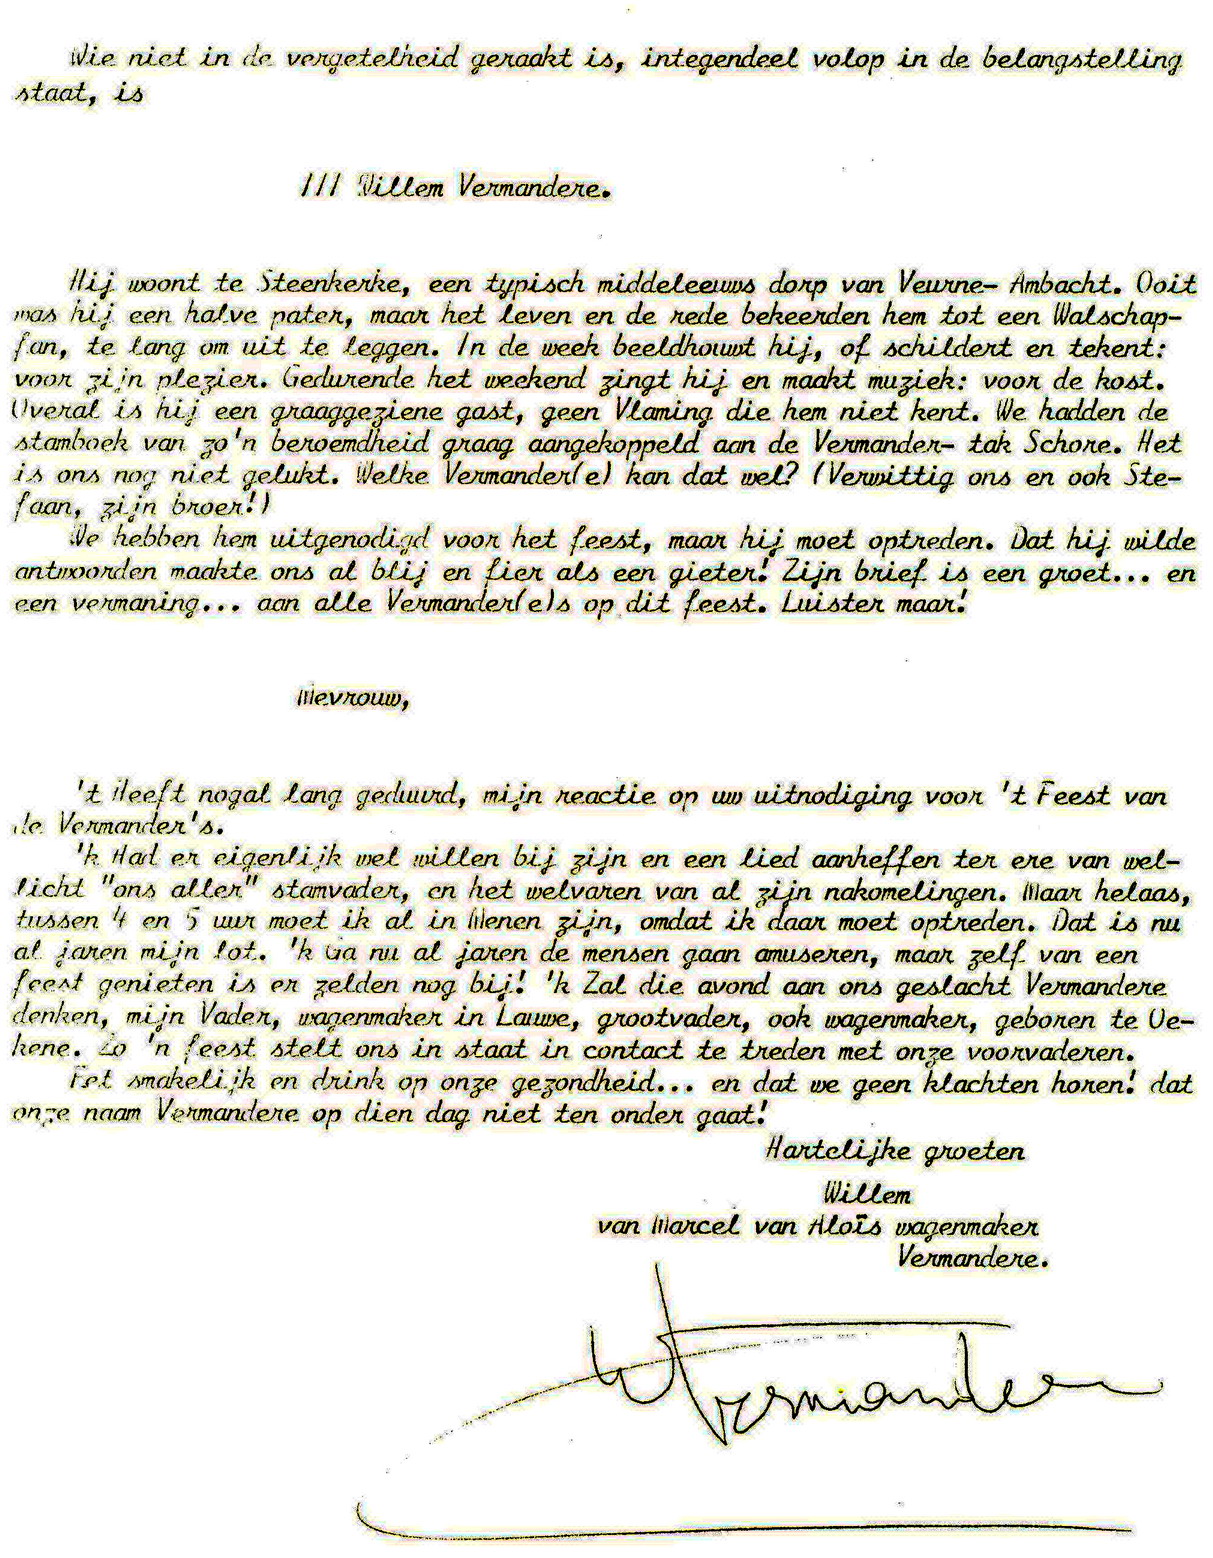 Wie niet in de vergetelheid geraakt is, integendeel volop in de belangstelling
staat, is
III Willem Vermandere.
Hij woont te Steenkerke, een typisch middeleeuws dorp van Veurne- Ambacht. Ooit
was hij een halve pater, maar het leven en de rede bekeerden hem tot een Walschap-
fan, te lang om uit te leggen. In de week beeldhouwt hij, of schildert en tekent:
voor zijn plezier. Gedurende het weekend zingt hij en maakt muziek: voor de kost.
Overal is hij een graaggeziene gast, geen Vlaming die hem niet kent. We hadden de
stamboek van zo'n beroemdheid graag aangekoppeld aan de Vermander- tak Schore. Het
is ons nog niet gelukt. Welke Vermander(e) kan dat wel? (Verwittig ons en ook Ste-
faan, zijn broer!)
We hebben hem uitgenodigd voor het feest, maar hij moet optreden. Dat hij wilde
antwoorden maakte ons al blij en fier als een gieter! Zijn brief is een groet... en
een vermaning... aan alle Vermander(e)s op dit feest. Luister maar!
Mevrouw,
't Heeft nogal lang geduurd, mijn reactie op uw uitnodiging voor 't Feest van
de Vermander's.
'k Had er eigenlijk wel willen bij zijn en een lied aanheffen ter ere van wel-
licht "ons aller" stamvader, en het welvaren van al zijn nakomelingen. Maar helaas,
tussen 4 en 5 uur moet ik al in Menen zijn, omdat ik daar moet optreden. Dat is nu
al jaren mijn lot. 'k Ga nu al jaren de mensen gaan amuseren, maar zelf van een
feest genieten is er zelden nog bij! 'k Zal die avond aan ons geslacht Vermandere
denken, mijn Vader, wagenmaker in Lauwe, grootvader, ook wagenmaker, geboren te Oe-
kene. Zo 'n feest stelt ons in staat in contact te treden met onze voorvaderen.
Eet smakelijk en drink op onze gezondheid... en dat we geen klachten horen! dat
onze naam Vermandere op dien dag niet ten onder gaat!
Hartelijke groeten
Willem
van Marcel van Aloïs wagenmaker
Vermandere.
W Vermandere